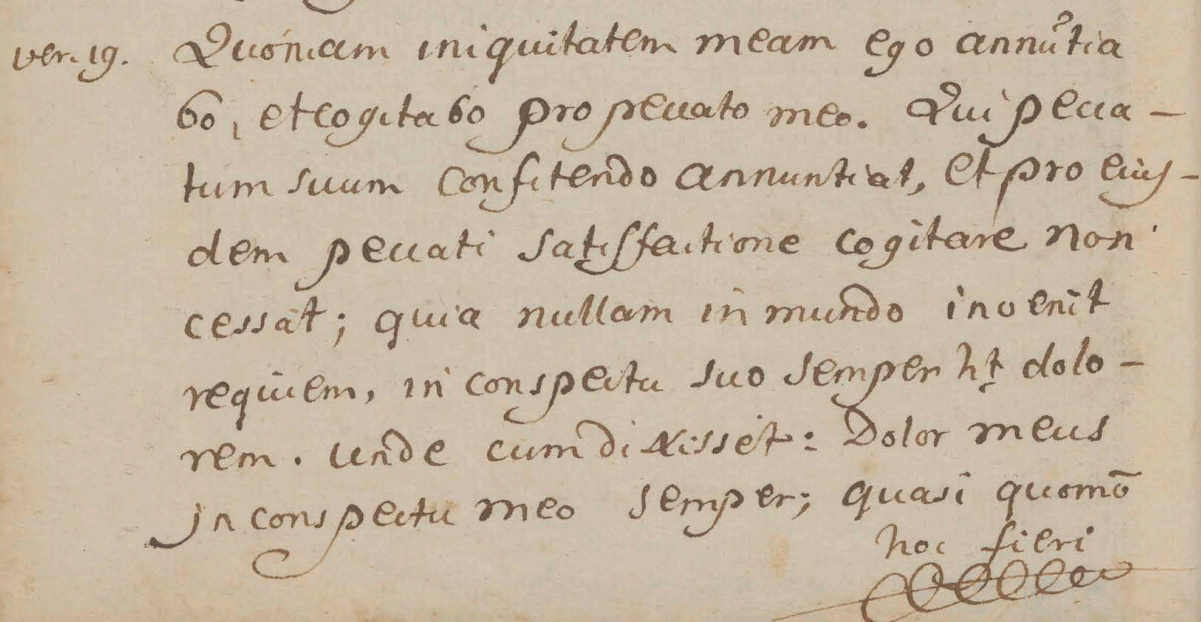 ver. 19. Quoniam iniquitatem meam ego annũtia
bo, et cogitabo pro peccato meo. Qui pecca-
tum suum confitendo annuntiat, et pro eius-
dem peccati satisfactione cogitare non
cessat; quia nullam in mundo invenit
requiem, in conspectu suo semper ht dolo-
rem. Unde cum dixisset: Dolor meus
in conspectu meo semper; quasi quomõ
hoc fieri